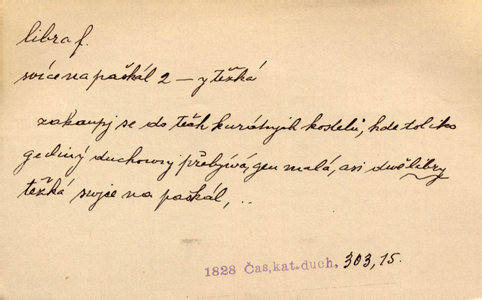 libra f.
svíce na paškál 2 – y težká
zakaupj se do těch kurátných kostelů, kde toliko
gediný duchowný přebývá, gen malá, asi dwě libry
težká swjce na paškál, . .
1828 Čas. kat. duch. 303, 15.